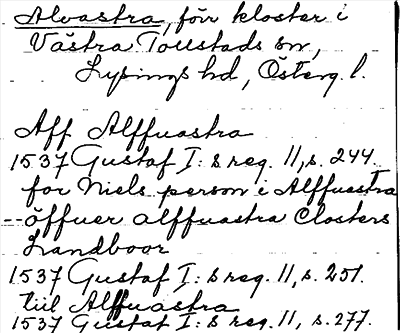 Alvastra, förr kloster i
Västra Tollstads sn,
Lysings hd, Österg. l.
Aff Alffuastra
1537 Gustaf I:s reg. 11, s. 244.
for Niels person i Alffuastra
-- öffuer alffuastra Closters
Landboor
1537 Gustaf I:s reg. 11, s. 251.
tiil Alffuastra
1537 Gustaf I:s reg. 11, s. 277.